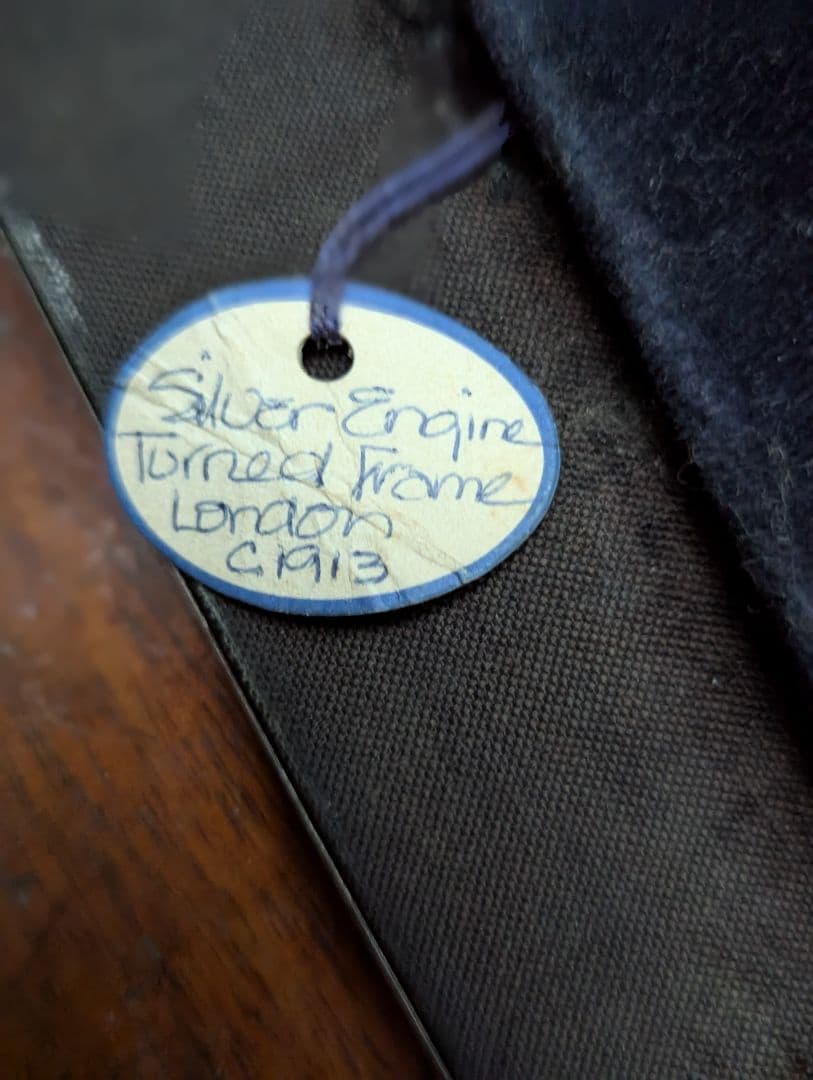 Silver Engine
Turned Frame
London
C1913